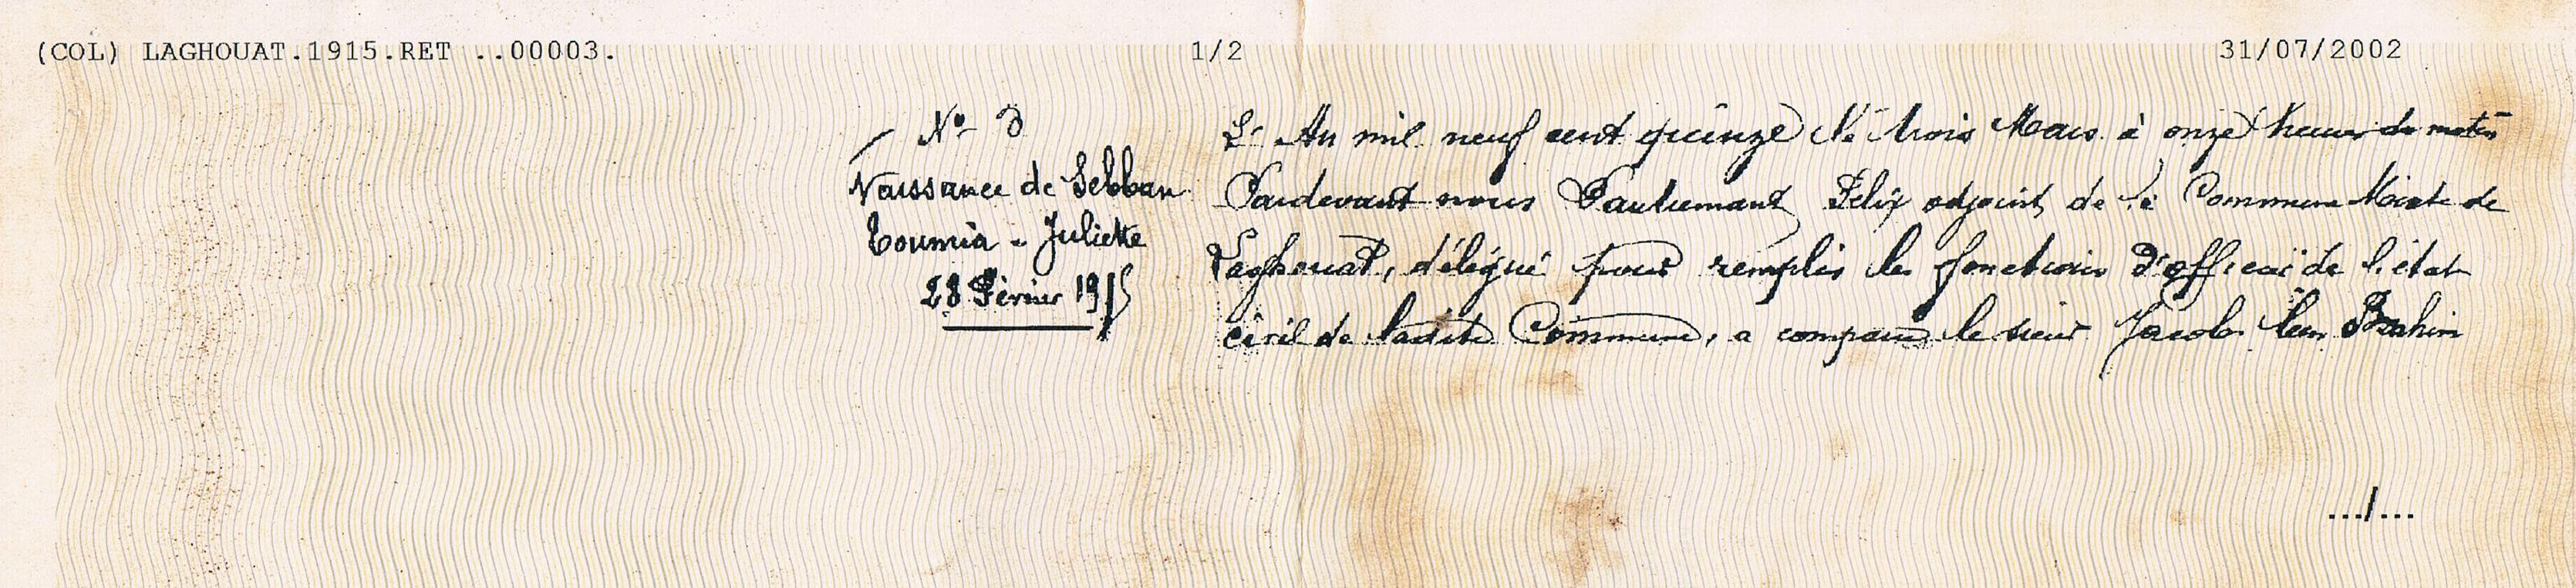 (COL) LAGHOUAT.1915.RET ..00003.
1/2
31/07/2002
N° 3
Naissance de Sebban
Toumia - Juliette
28 Février 1915
L'An mil neuf cent quinze le trois Mars à onze heures du matin
Pardevant nous Félix adjoint de la Commune Mixte de
Laghouat, délégué pour remplir les fonctions d'officier de l'état
civil de ladite Commune, a comparu le sieur Jacob ben Brahim
.../...